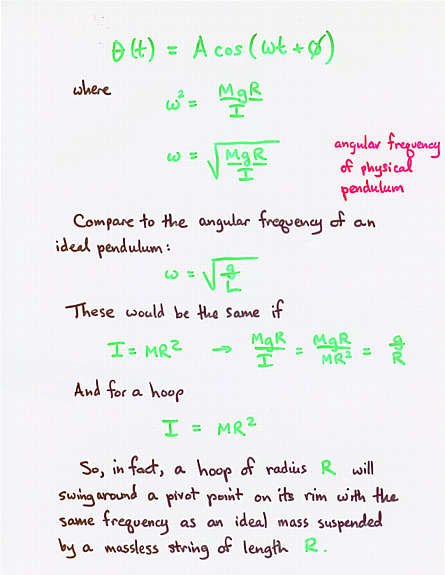 θ(t) = A cos(ωt + ø)
where
ω² = MgR/I
ω = √(MgR/I)
angular frequency
of physical
pendulum
Compare to the angular frequency of an
ideal pendulum:
ω = √(g/L)
These would be the same if
I = MR² → MgR/I = MgR/MR² = g/R
And for a hoop
I = MR²
So, in fact, a hoop of radius R will
swing around a pivot point on its rim with the
same frequency as an ideal mass suspended
by a massless string of length R.